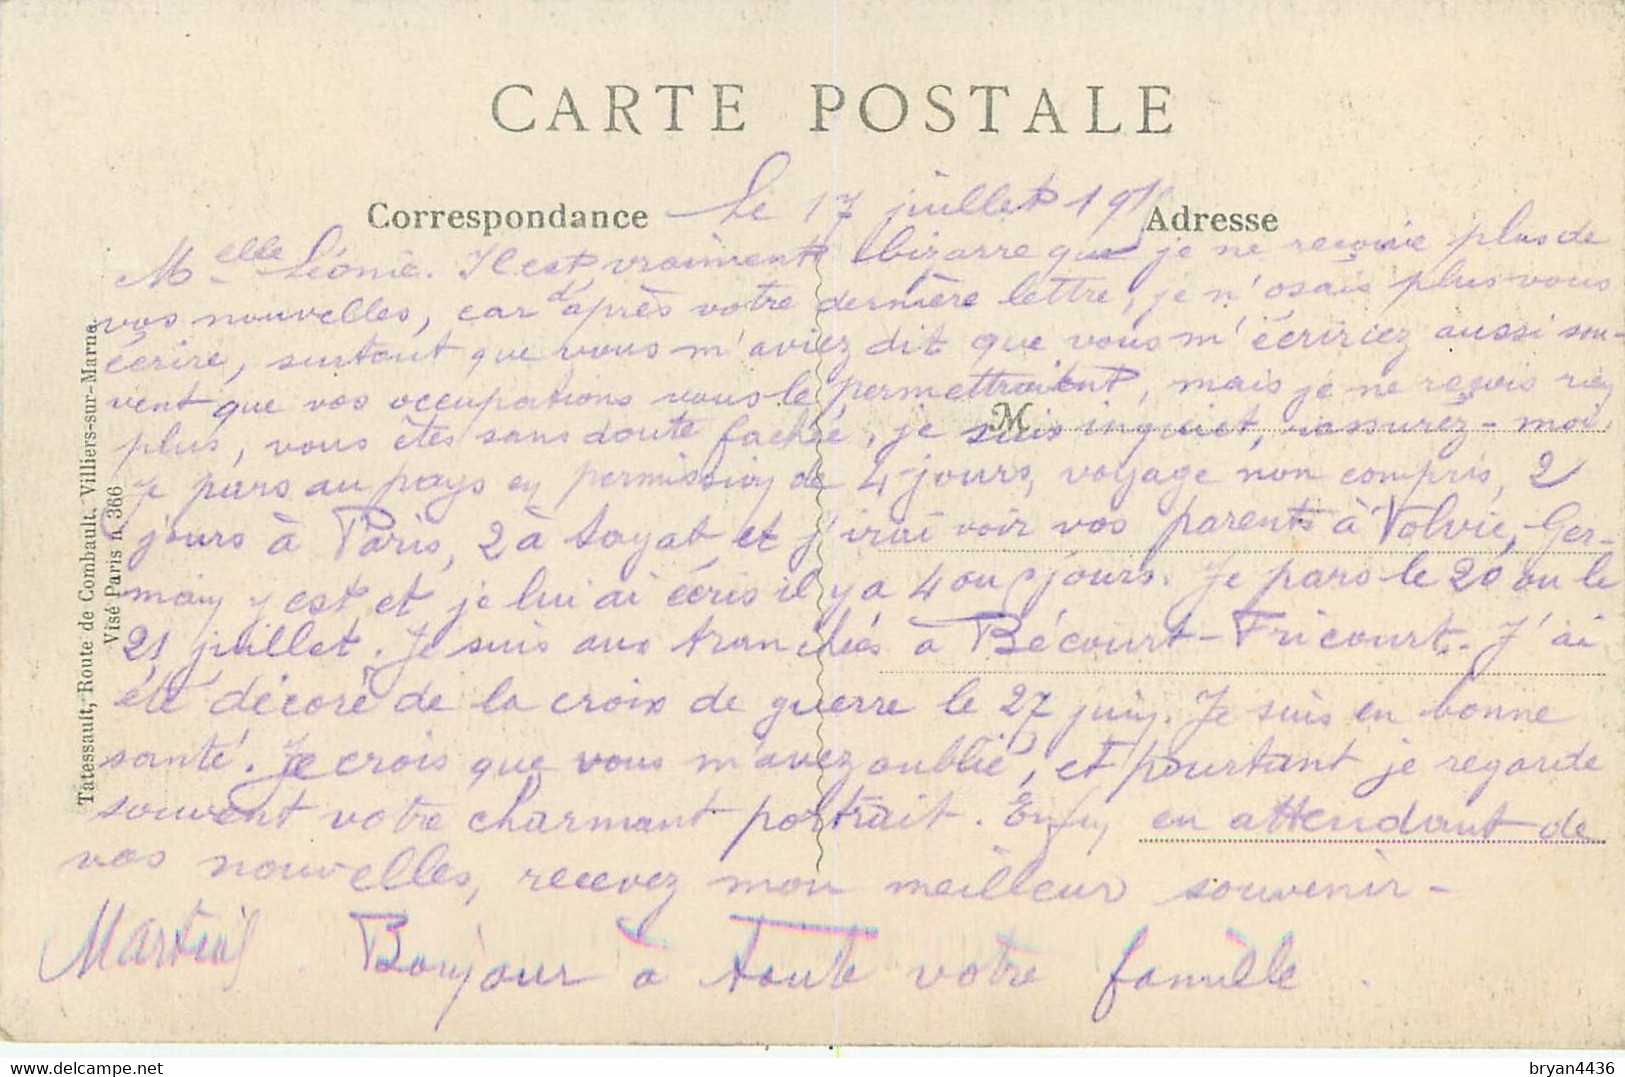 CARTE POSTALE
Correspondance
Le 17 juillet 191
Adresse
Melle Léonie. Il est vraiment bizarre que je ne reçoive plus de
vos nouvelles, car d'après votre dernière lettre, je n'osais plus vous
écrire, surtout que vous m'aviez dit que vous m'écririez aussi sou-
vent que vos occupations vous le permettraient, mais je ne reçois rien
plus, vous êtes sans doute fachée, je suis inquiet, rassurez-moi,
M
Je pars au pays en permission de 4 jours, voyage non compris, 2
jours à Paris, 2 à Sayat et j'irai voir vos parents à Volvic, Ger-
main y est et je lui ai écris il y a 4 ou 5 jours. Je pars le 20 ou le
21 juillet. Je suis aux tranchées à Bécourt-Fricourt. J'ai
été décoré de la croix de guerre le 27 juin. Je suis en bonne
santé. Je crois que vous m'avez oublié, et pourtant je regarde
souvent votre charmant portrait. Enfin en attendant de
vos nouvelles, recevez mon meilleur souvenir-
Martial. Bonjour à toute votre famille.
Tatessault, Route de Combault, Villiers-sur-Marne.
Visé Paris n. 366
bryan4436